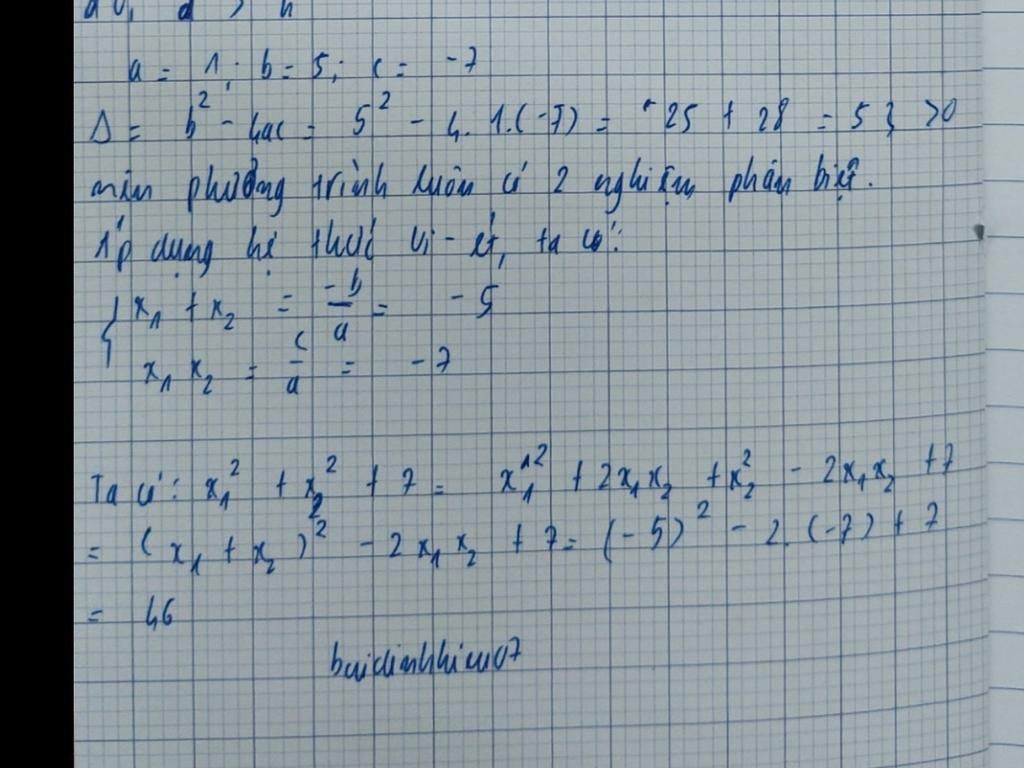 a = 1; b = 5; c = -7
Δ = b² - 4ac = 5² - 4.1.(-7) = 25 + 28 = 53 > 0
nên phương trình luôn có 2 nghiệm phân biệt.
Áp dụng hệ thức Vi-ét, ta có:
{ x₁ + x₂ = -b/a = -5
x₁ x₂ = c/a = -7
Ta có: x₁² + x₂² + 7 = x₁² + 2x₁x₂ + x₂² - 2x₁x₂ + 7
= (x₁ + x₂)² - 2x₁x₂ + 7 = (-5)² - 2.(-7) + 7
= 46